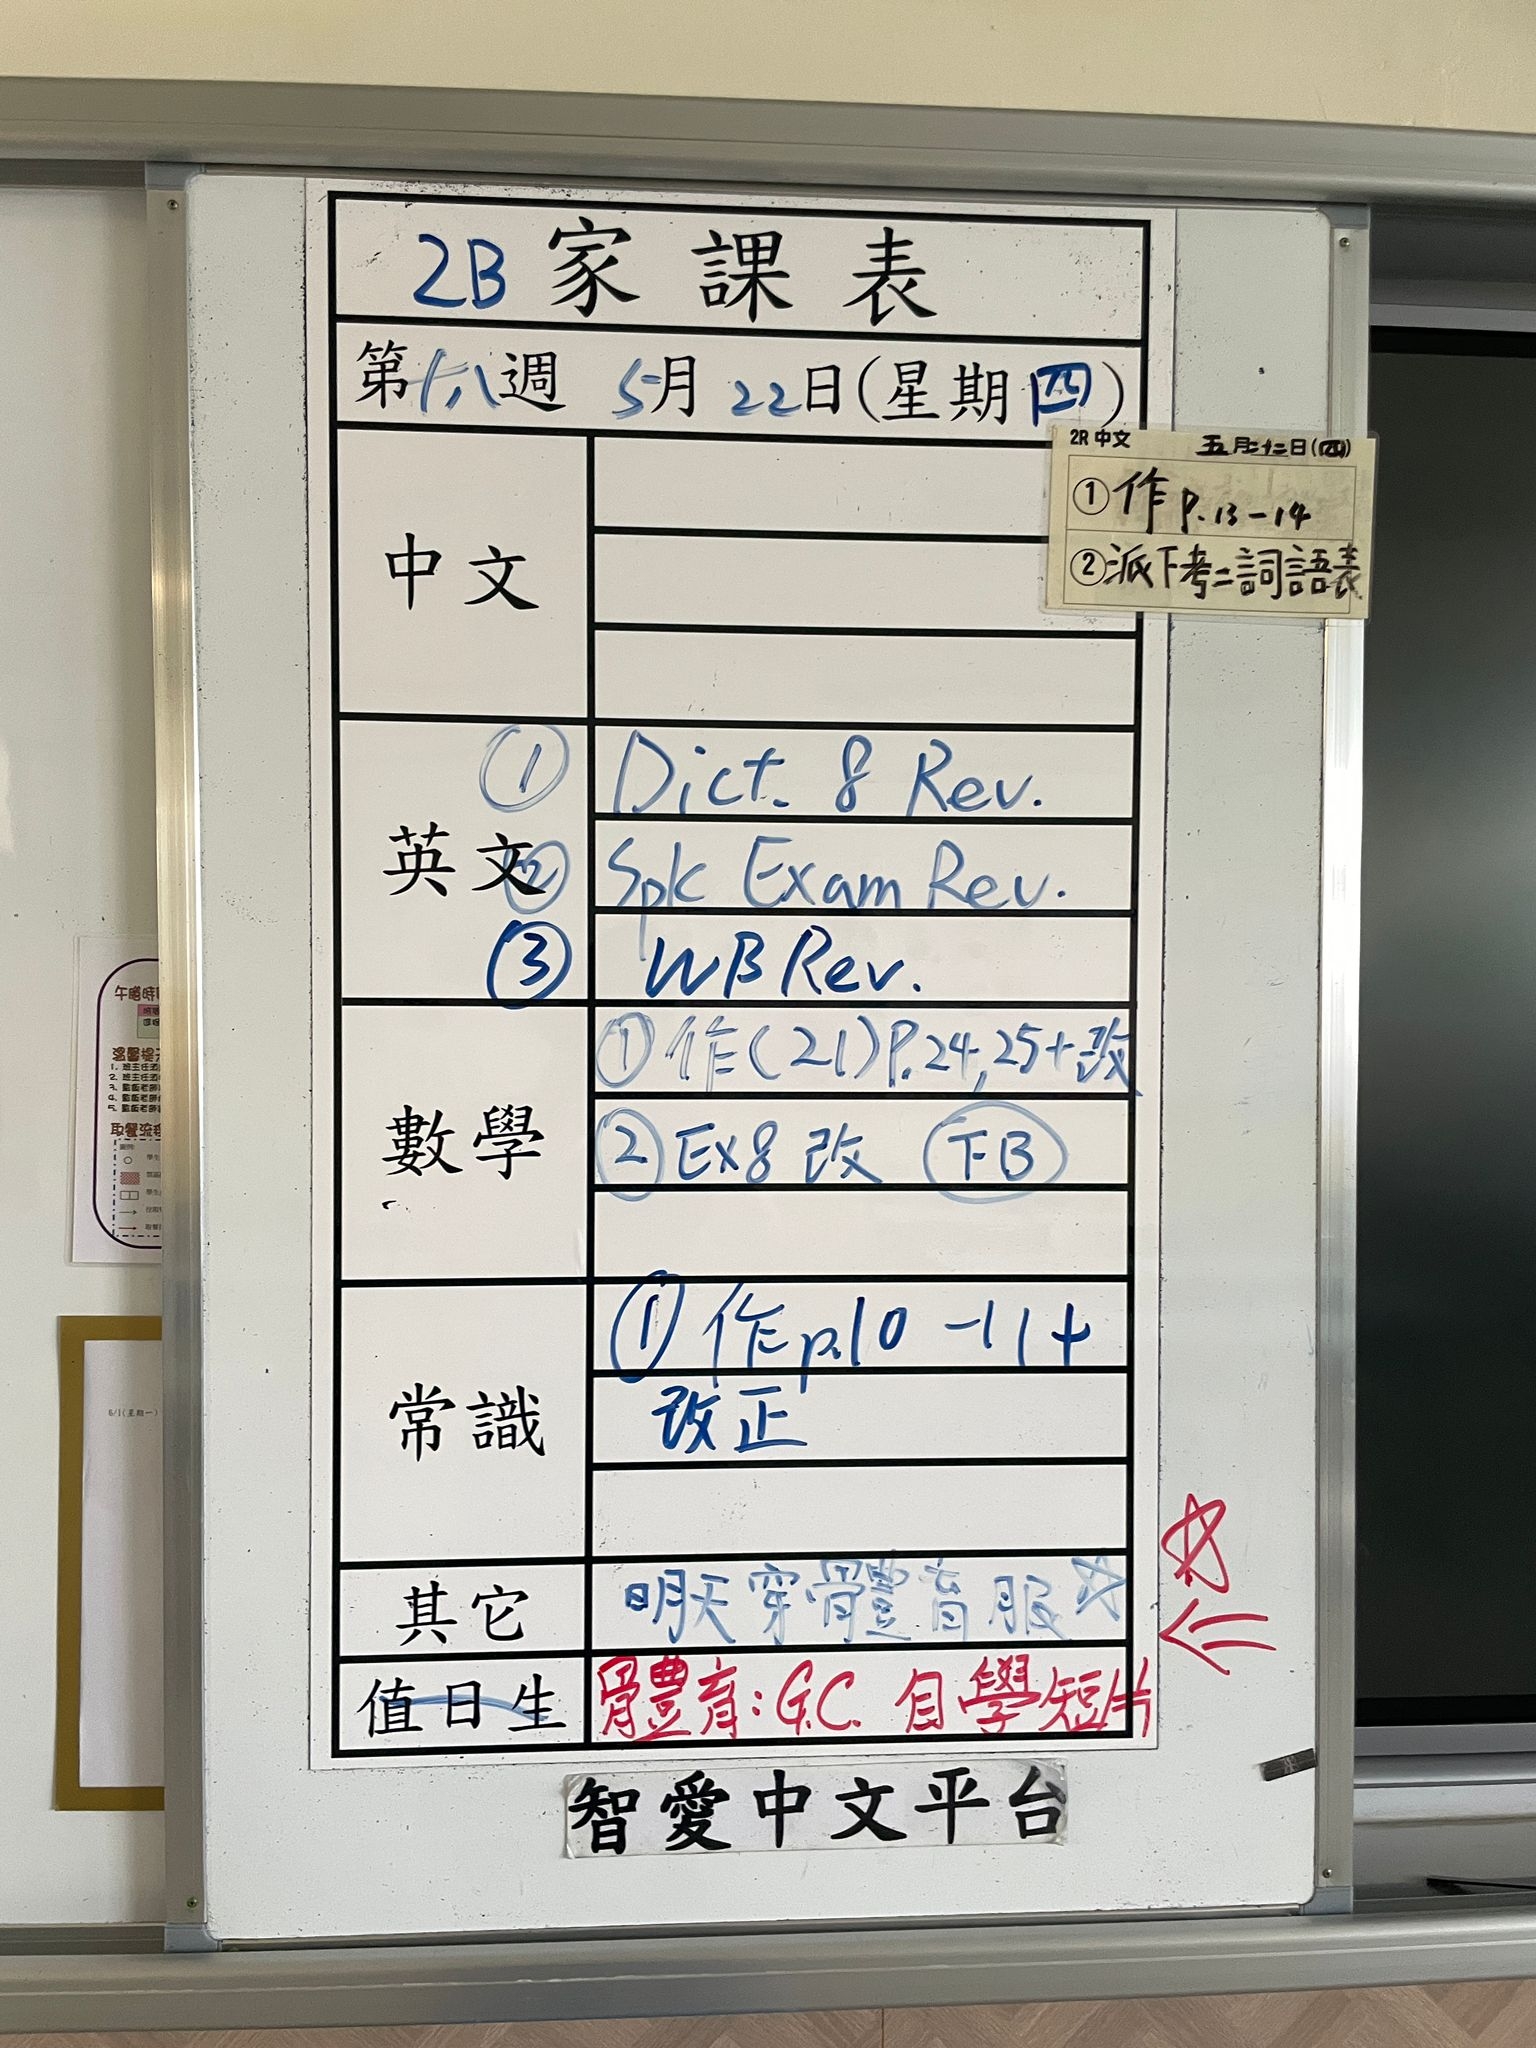 2B 家課表
第十八週 5月22日(星期四)
2R 中文 五月二十二日(四)
① 作 P.13-14
② 派下考二詞語表
中文
英文
① Dict. 8 Rev.
② Spk Exam Rev.
③ WB Rev.
數學
① 作(21)P.24,25+改
② Ex8 改 下B
常識
① 作p.10-11+
改正
其它
明天穿體育服☆
值日生
體育:G.C. 自學短片
智愛中文平台
午膳時
溫馨提
取餐流程
6/1(星期一)